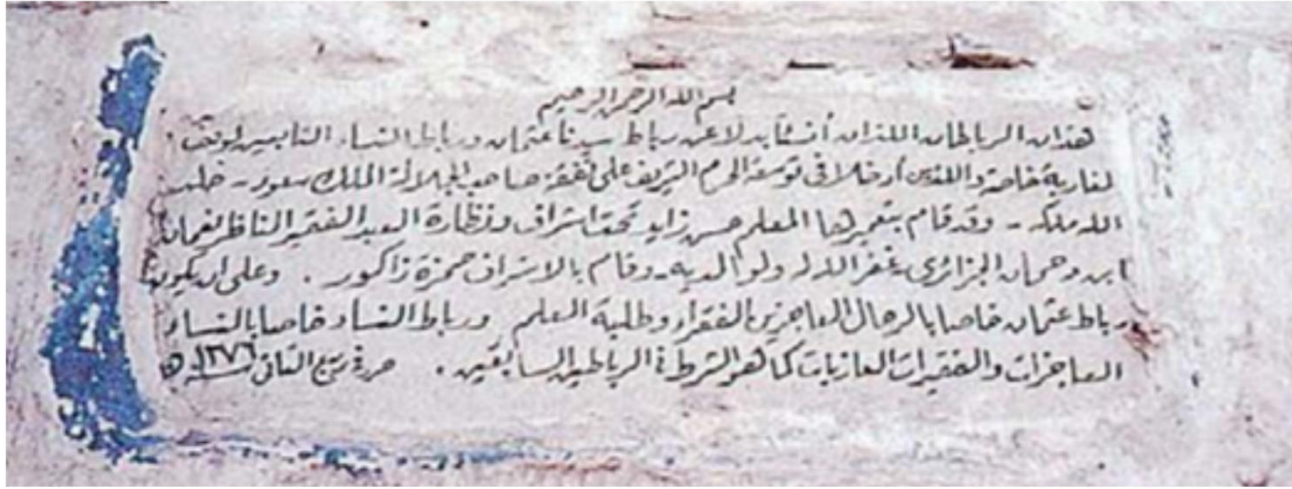 بسم الله الرحمن الرحيم
هذان الرباطان اللذان أنشئا بدلا عن رباط سيدنا عثمان ورباط النساء التابعين لوقف
المغاربة خاصة واللذين أدخلا في توسعة الحرم الشريف على نفقة صاحب الجلالة الملك سعود - خلد
الله ملكه - وقد قام بتعميرها المعلم حسن زايد تحت اشراف ونظارة العبد الفقير الناظر نعمان
ابن دحمان الجزائري غفر الله له ولوالديه - وقام بالاشراف حمزة زاكور . وعلى ان يكون
رباط عثمان خاصا بالرجال العاجزين الفقراء وطلبة العلم ورباط النساء خاصا بالنساء
العاجزات والفقيرات العازبات كما هو الشرط في الرباطين السابقين . حرر في ربيع الثاني سنة ١٣٧٦ هـ